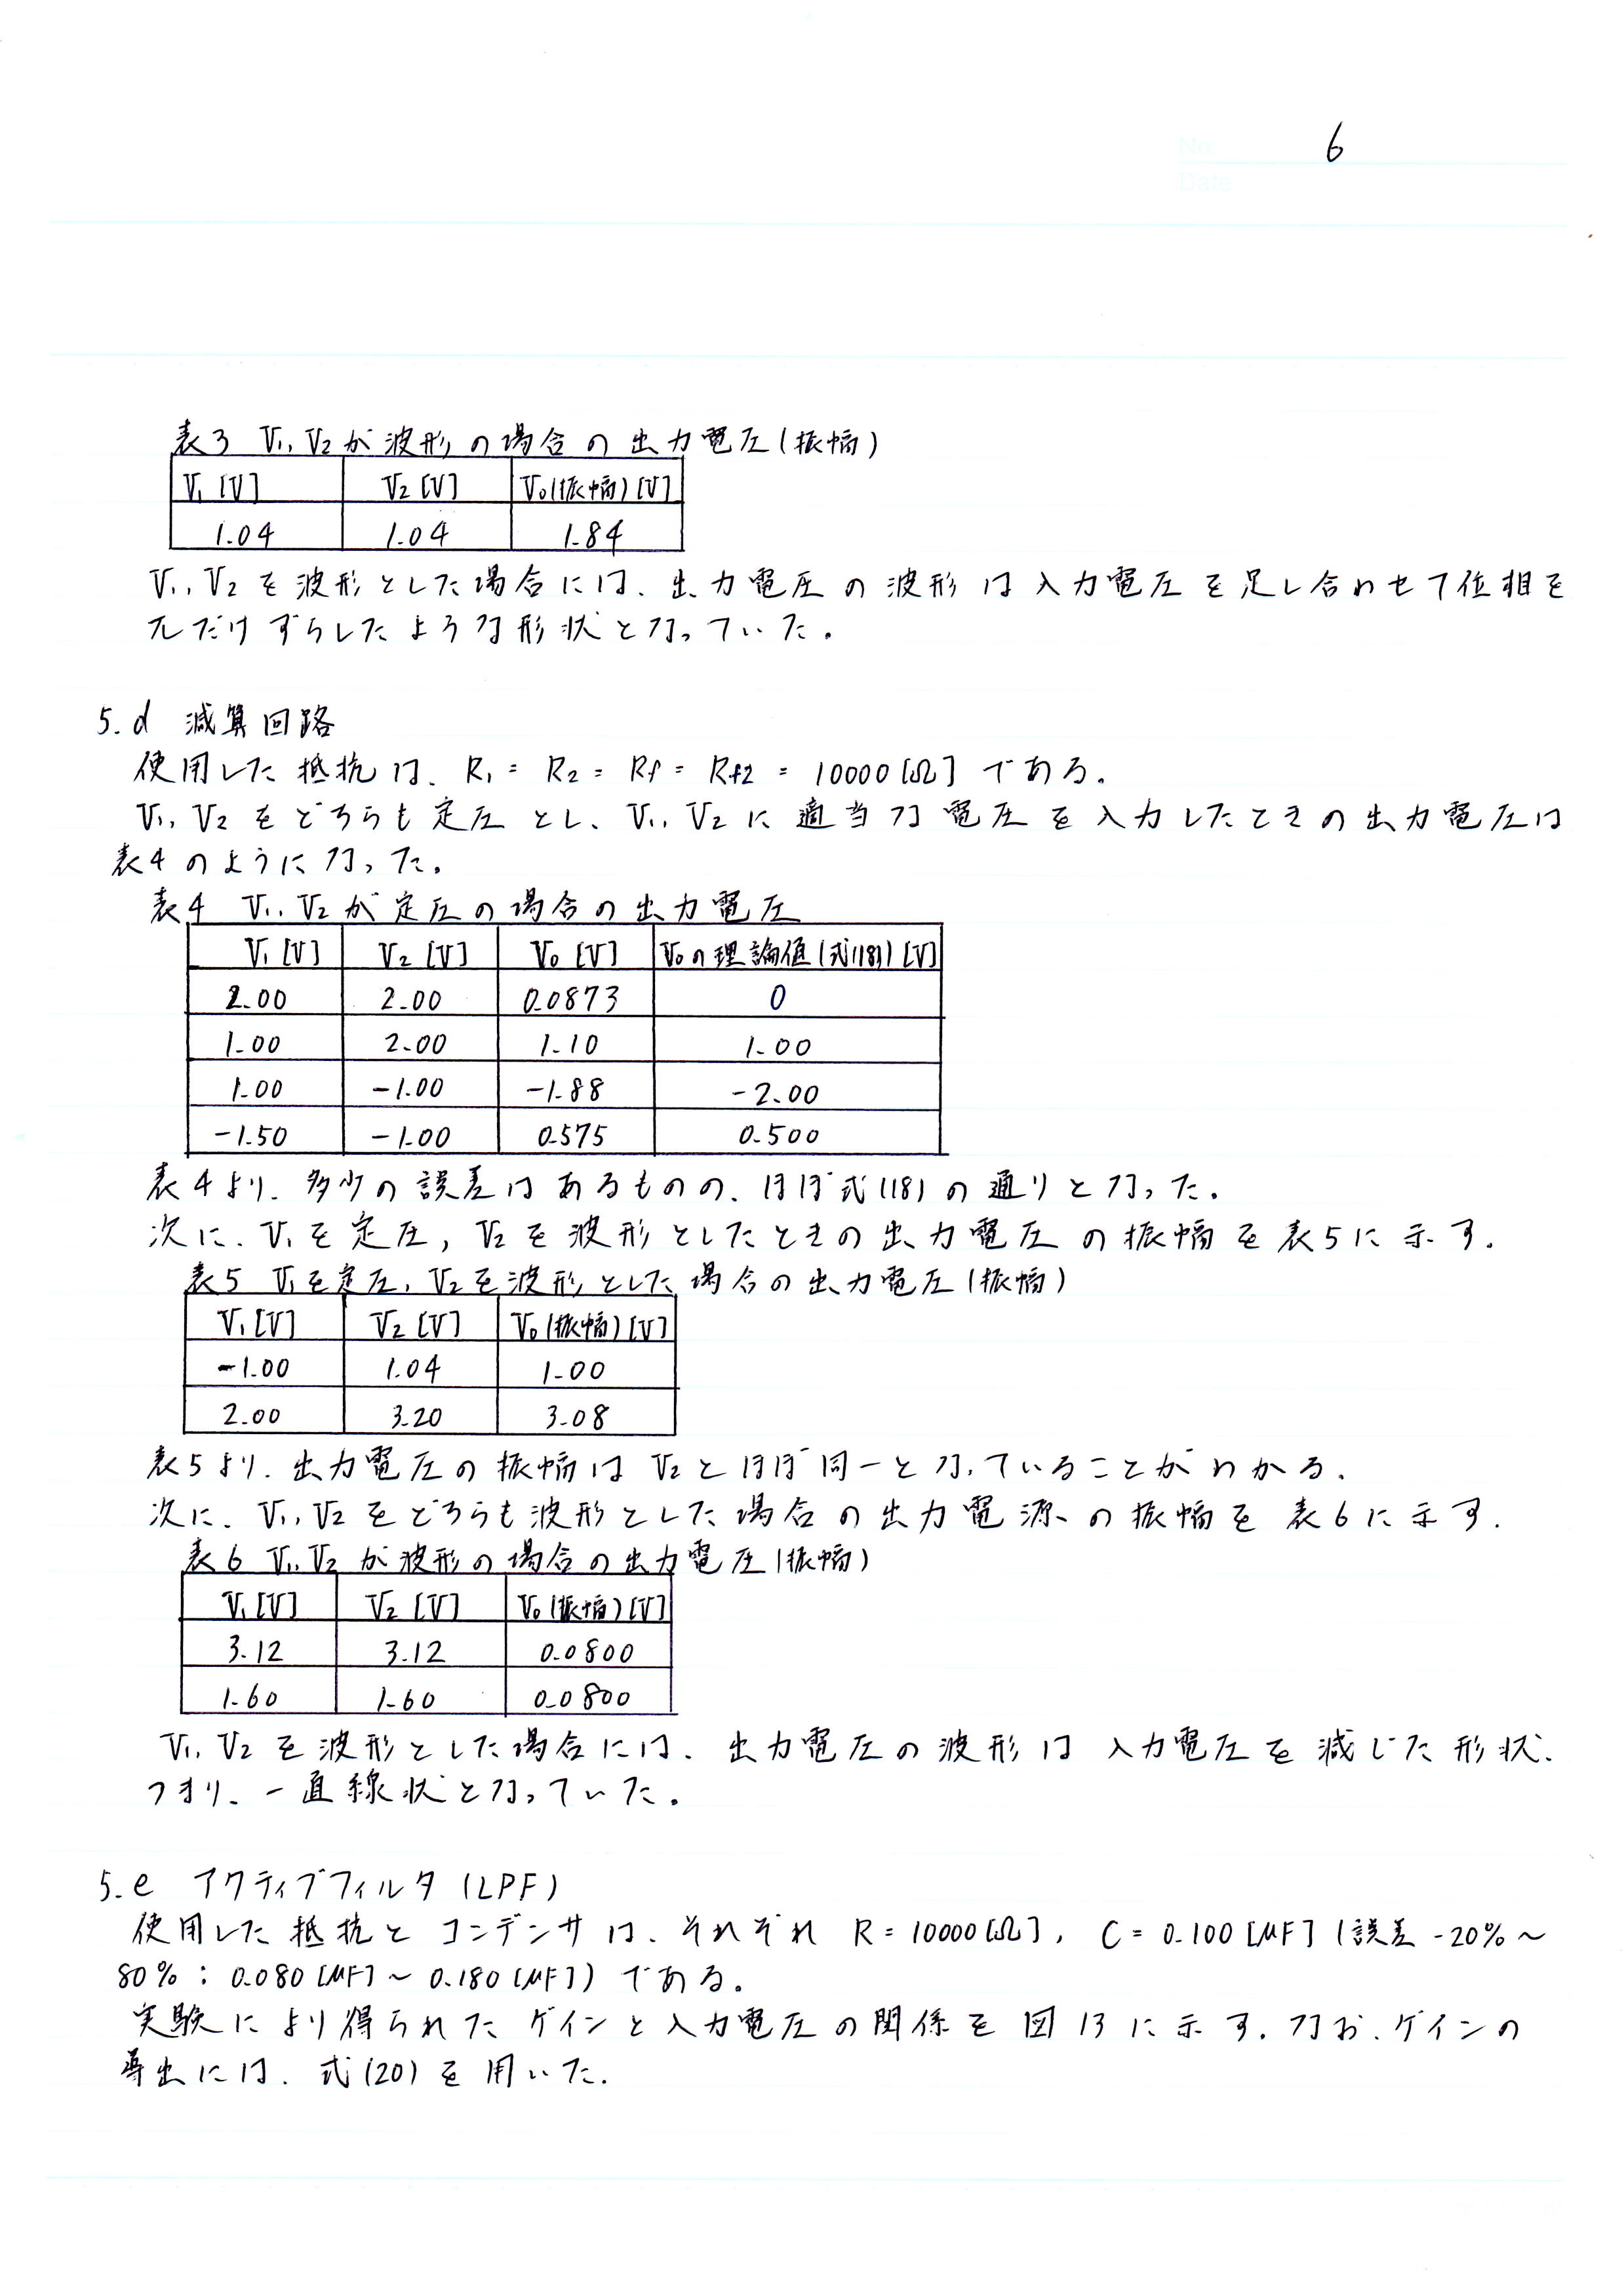 No. 6
Date
表3 V₁, V₂が波形の場合の出力電圧(振幅)
V₁[V] V₂[V] V₀(振幅)[V]
1.04 1.04 1.84
V₁, V₂を波形とした場合には、出力電圧の波形は入力電圧を足し合わせて位相を
πだけずらしたような形状となっていた。
5.d 減算回路
使用した抵抗は、R₁ = R₂ = Rf = Rf2 = 10000[Ω]である。
V₁, V₂をどちらも定圧とし、V₁, V₂に適当な電圧を入力したときの出力電圧は
表4のようになった。
表4 V₁, V₂が定圧の場合の出力電圧
V₁[V] V₂[V] V₀[V] V₀の理論値(式(18))[V]
2.00 2.00 0.0873 0
1.00 2.00 1.10 1.00
1.00 -1.00 -1.88 -2.00
-1.50 -1.00 0.575 0.500
表4より、多少の誤差はあるものの、ほぼ式(18)の通りとなった。
次に、V₁を定圧, V₂を波形としたときの出力電圧の振幅を表5に示す.
表5 V₁を定圧, V₂を波形とした場合の出力電圧(振幅)
V₁[V] V₂[V] V₀(振幅)[V]
-1.00 1.04 1.00
2.00 3.20 3.08
表5より、出力電圧の振幅はV₂とほぼ同一となっていることがわかる.
次に、V₁, V₂をどちらも波形とした場合の出力電源の振幅を表6に示す.
表6 V₁, V₂が波形の場合の出力電圧(振幅)
V₁[V] V₂[V] V₀(振幅)[V]
3.12 3.12 0.0800
1.60 1.60 0.0800
V₁, V₂を波形とした場合には、出力電圧の波形は入力電圧を減じた形状、
つまり、一直線状となっていた。
5.e アクティブフィルタ(LPF)
使用した抵抗とコンデンサは、それぞれ R = 10000[Ω], C = 0.100[μF] (誤差 -20%～
80% : 0.080[μF]～0.180[μF])である。
実験により得られたゲインと入力電圧の関係を図13に示す. なお、ゲインの
導出には、式(20)を用いた.